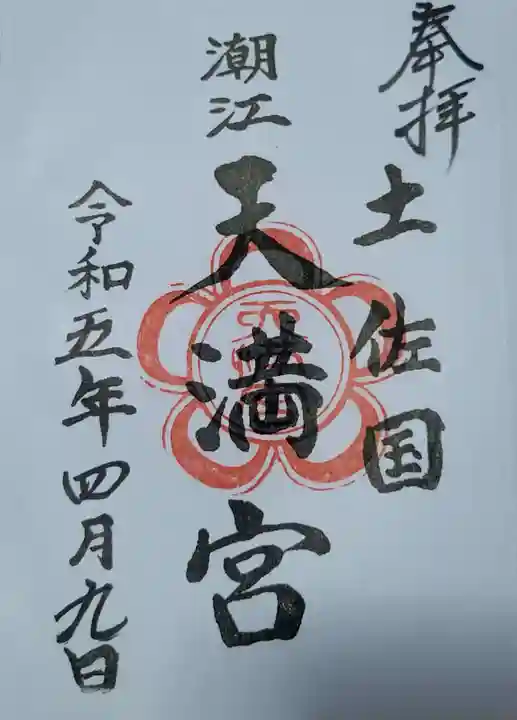 奉拝
土佐国
潮江
天満宮
令和五年四月九日